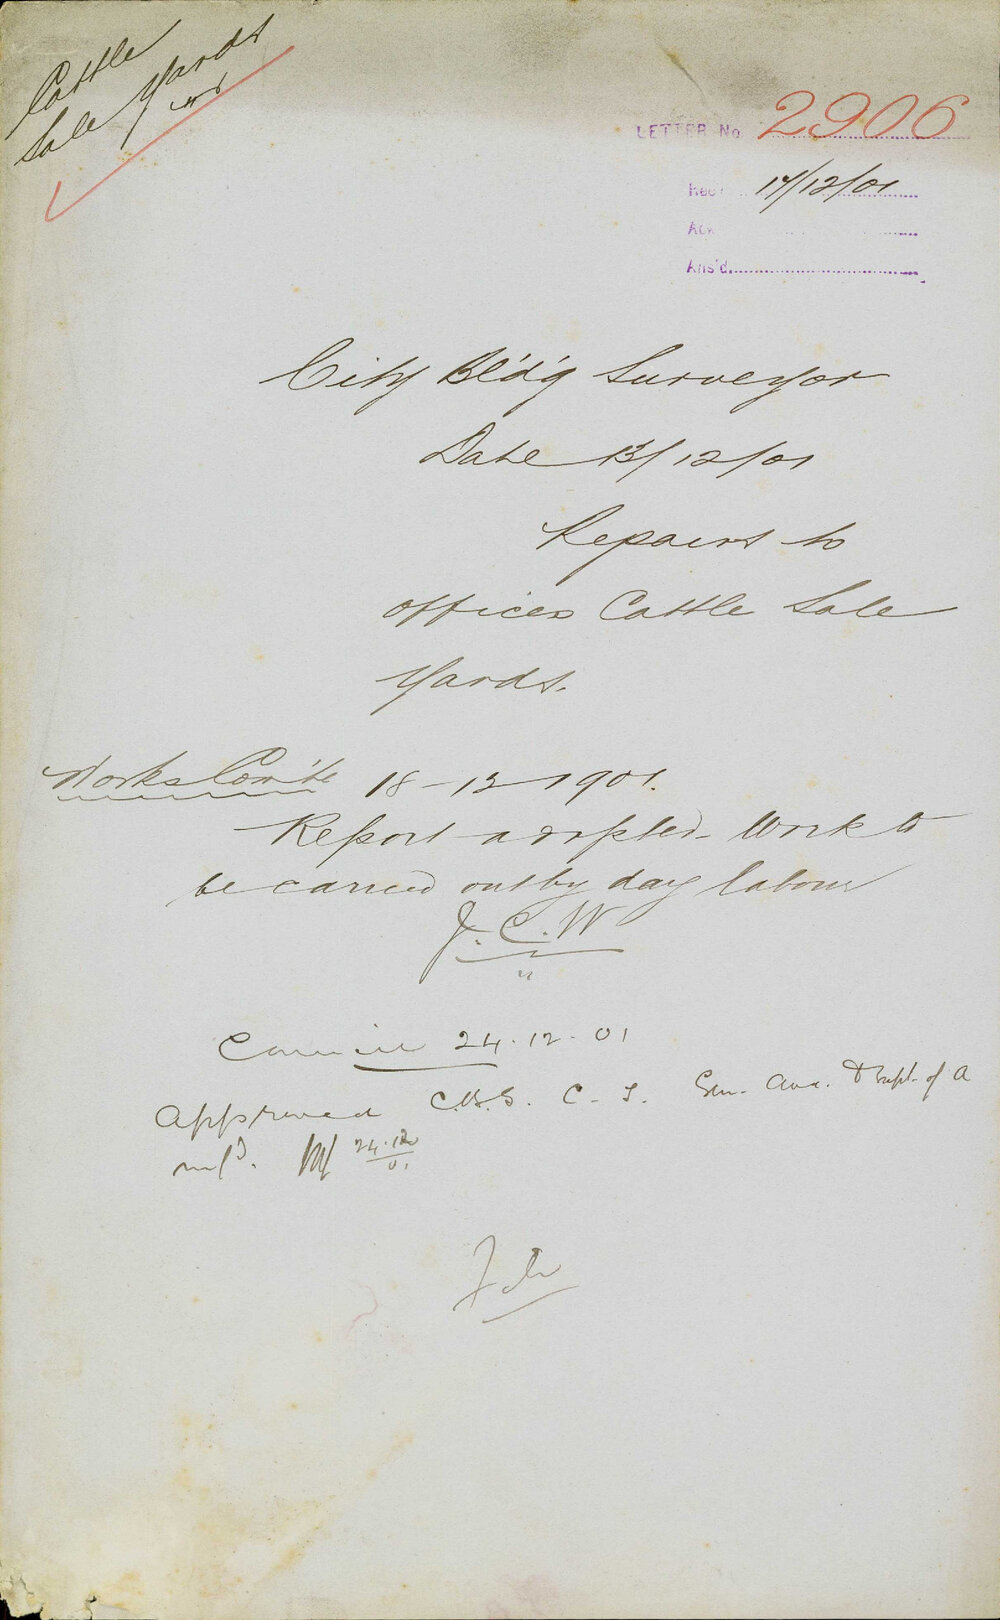 Cattle
Sale Yards
LETTER No 2906
Rec 17/12/01
Ack
Ans'd
City Bl'd'g Surveyor
Date 13/12/01
Repairs to
offices Cattle Sale
Yards.
Works Com'tee 18-12-1901.
Report adopted - Work to
be carried out by day labour
J.C.W
Council 24.12.01
Approved C.B.S. C.T. Dept. of A
24.12/01